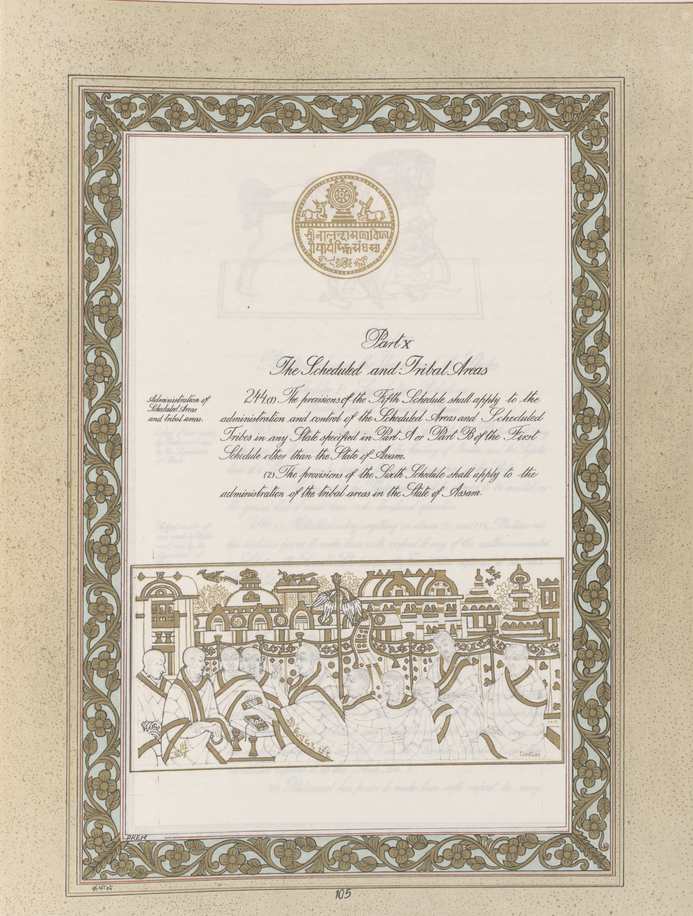 श्री नालन्दा महाविहा
रीयार्यभिक्षुसंघस्य
Part X
The Scheduled and Tribal Areas
Administration of
Scheduled Areas
and tribal areas.
244.(1) The provisions of the Fifth Schedule shall apply to the
administration and control of the Scheduled Areas and Scheduled
Tribes in any State specified in Part A or Part B of the First
Schedule other than the State of Assam.
(2) The provisions of the Sixth Schedule shall apply to the
administration of the tribal areas in the State of Assam.
PREM
105